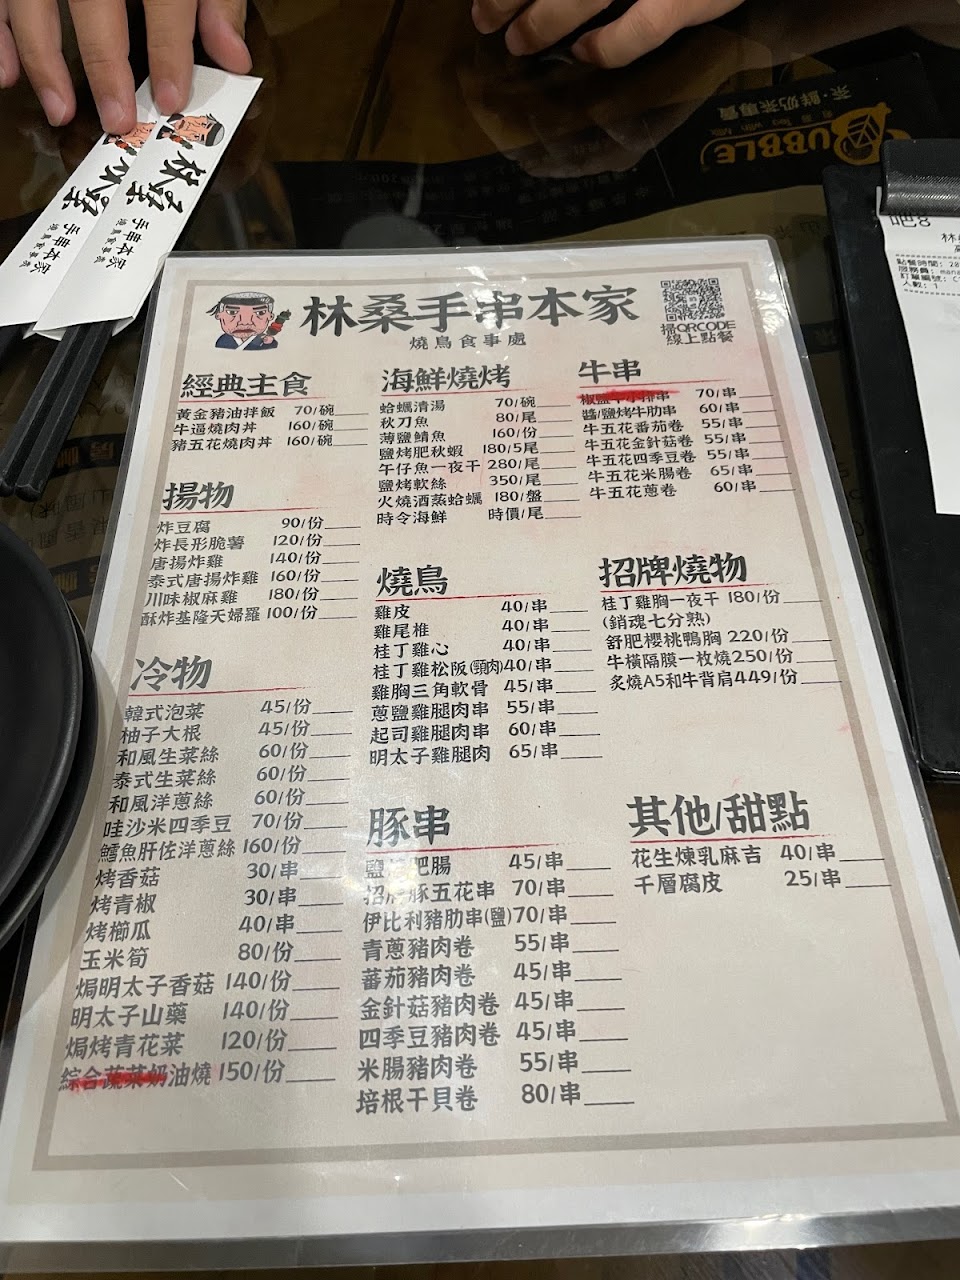 林桑手串本家
燒鳥食事處
掃QRCODE
線上點餐
經典主食
黃金豬油拌飯 70/碗
牛逼燒肉丼 160/碗
豬五花燒肉丼 160/碗
揚物
炸豆腐 90/份
炸長形脆薯 120/份
唐揚炸雞 140/份
泰式唐揚炸雞 160/份
川味椒麻雞 180/份
酥炸基隆天婦羅 100/份
冷物
韓式泡菜 45/份
柚子大根 45/份
和風生菜絲 60/份
泰式生菜絲 60/份
和風洋蔥絲 60/份
哇沙米四季豆 70/份
鱈魚肝佐洋蔥絲 160/份
烤香菇 30/串
烤青椒 30/串
烤櫛瓜 40/串
玉米筍 80/份
焗明太子香菇 140/份
明太子山藥 140/份
焗烤青花菜 120/份
綜合蔬菜奶油燒 150/份
海鮮燒烤
蛤蠣清湯 70/碗
秋刀魚 80/尾
薄鹽鯖魚 160/份
鹽烤肥秋蝦 180/5尾
午仔魚一夜干 280/尾
鹽烤軟絲 350/尾
火燒酒蒸蛤蠣 180/盤
時令海鮮 時價/尾
燒鳥
雞皮 40/串
雞尾椎 40/串
桂丁雞心 40/串
桂丁雞松阪(頸肉) 40/串
雞胸三角軟骨 45/串
蔥鹽雞腿肉串 55/串
起司雞腿肉串 60/串
明太子雞腿肉 65/串
豚串
鹽烤肥腸 45/串
招牌豚五花串 70/串
伊比利豬肋串(鹽) 70/串
青蔥豬肉卷 55/串
蕃茄豬肉卷 45/串
金針菇豬肉卷 45/串
四季豆豬肉卷 45/串
米腸豬肉卷 55/串
培根干貝卷 80/串
牛串
椒鹽牛小排串 70/串
醬/鹽烤牛肋串 60/串
牛五花番茄卷 55/串
牛五花金針菇卷 55/串
牛五花四季豆卷 55/串
牛五花米腸卷 65/串
牛五花蔥卷 60/串
招牌燒物
桂丁雞胸一夜干 180/份
(銷魂七分熟)
舒肥櫻桃鴨胸 220/份
牛橫隔膜一枚燒 250/份
炙燒A5和牛背肩 449/份
其他/甜點
花生煉乳麻吉 40/串
千層腐皮 25/串
林桑
手串本家
燒鳥食事處
林桑
手串本家
BUBBLE
Tea with Milk
茶·鮮奶茶專賣
吧8
點餐時間: 20
服務員: mana
訂單編號: C
人數: 1